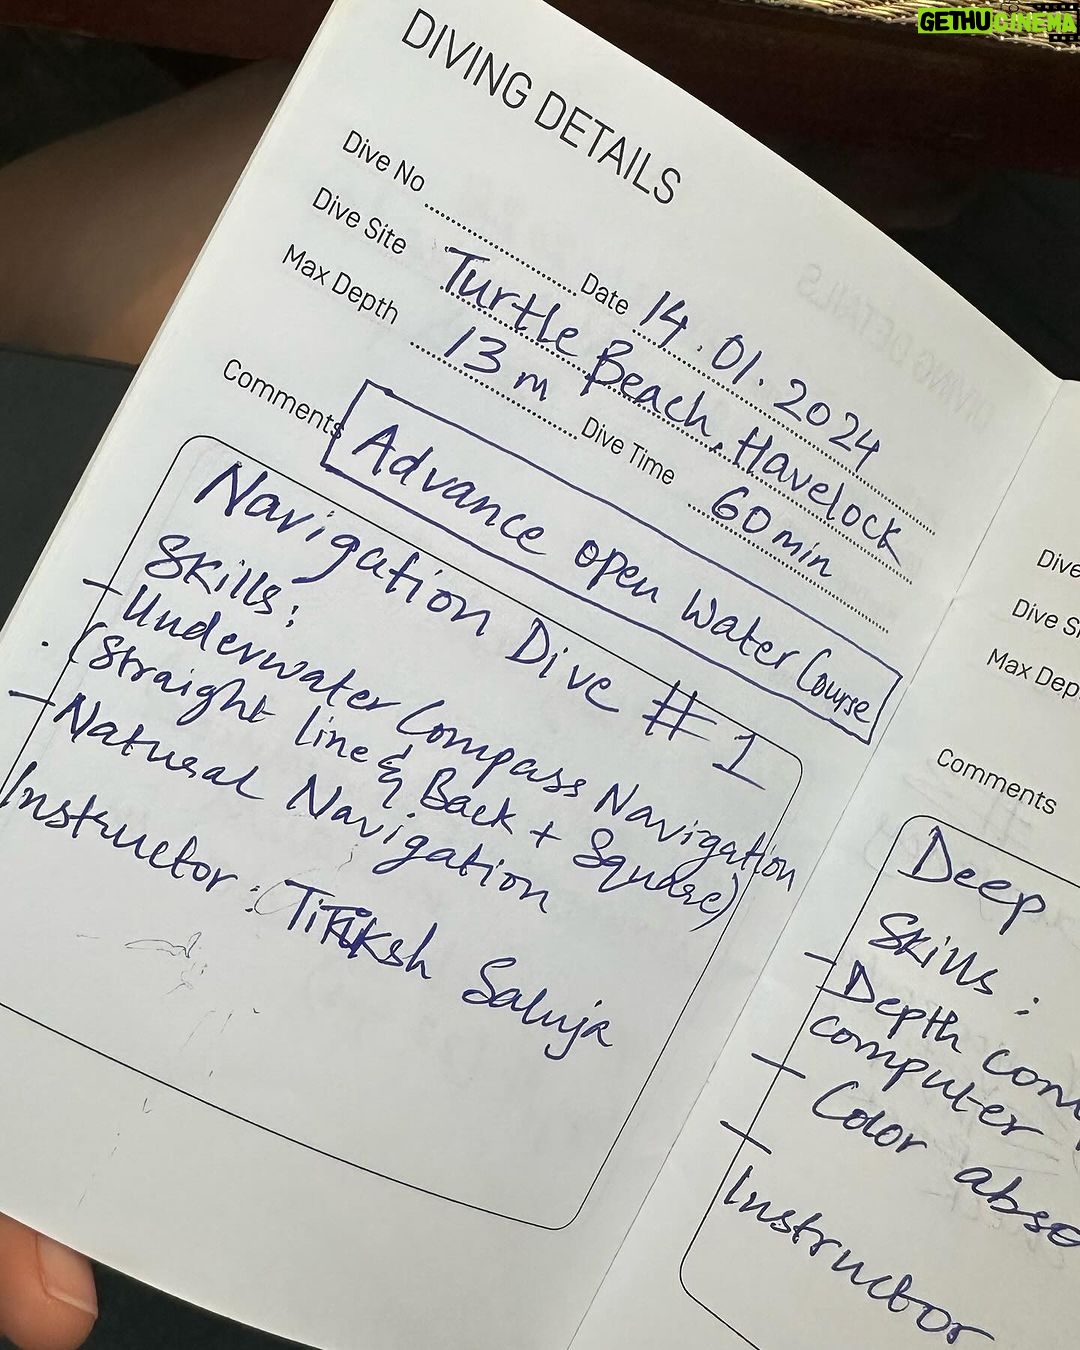 GETHUCINEMA
DIVING DETAILS
Dive No Date 14.01.2024
Dive Site Turtle Beach, Havelock
Max Depth 13 m Dive Time 60 min
Comments
Advance open Water Course
Navigation Dive #1
Skills:
- Underwater Compass Navigation
(Straight line & Back + Square)
- Natural Navigation
Instructor: Saluja
Dive
Dive S
Max Dep
Comments
Deep
Skills:
- Depth com
computer
- Color abso
- Instructor